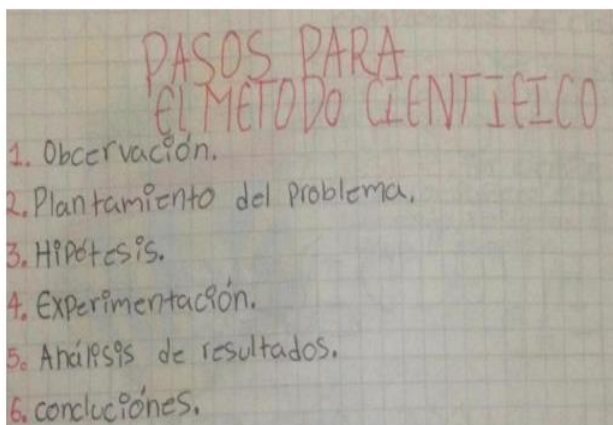 PASOS PARA
EL METODO CIENTIFICO
1. Obcervación.
2. Plantamiento del problema.
3. Hipótesis.
4. Experimentación.
5. Análisis de resultados.
6. concluciónes.